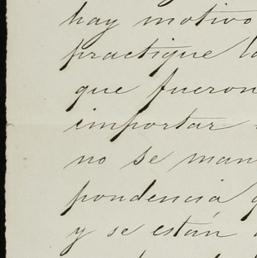 hay motivo
practique la
que fueron
importar
no se man
pondencia
y se están